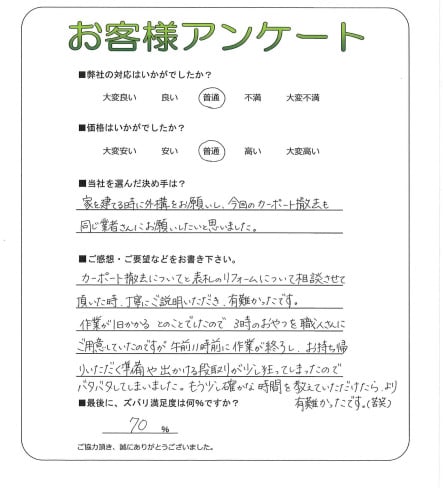 お客様アンケート
■弊社の対応はいかがでしたか?
大変良い 良い 普通 不満 大変不満
■価格はいかがでしたか?
大変安い 安い 普通 高い 大変高い
■当社を選んだ決め手は?
家を建てる時に外構をお願いし、今回のカーポート撤去も
同じ業者さんにお願いしたいと思いました。
■ご感想・ご要望などをお書き下さい。
カーポート撤去についてと表札のリフォームについて相談させて
頂いた時、丁寧にご説明いただき、有難かったです。
作業が1日かかるとのことでしたので3時のおやつを職人さんに
ご用意していたのですが午前11時前に作業が終了し、お持ち帰
りいただく準備や出かける段取りが少し狂ってしまったので
バタバタしてしまいました。もう少し確かな時間を教えていただけたら、より
有難かったです。(苦笑)
■最後に、ズバリ満足度は何%ですか?
70 %
ご協力頂き、誠にありがとうございました。